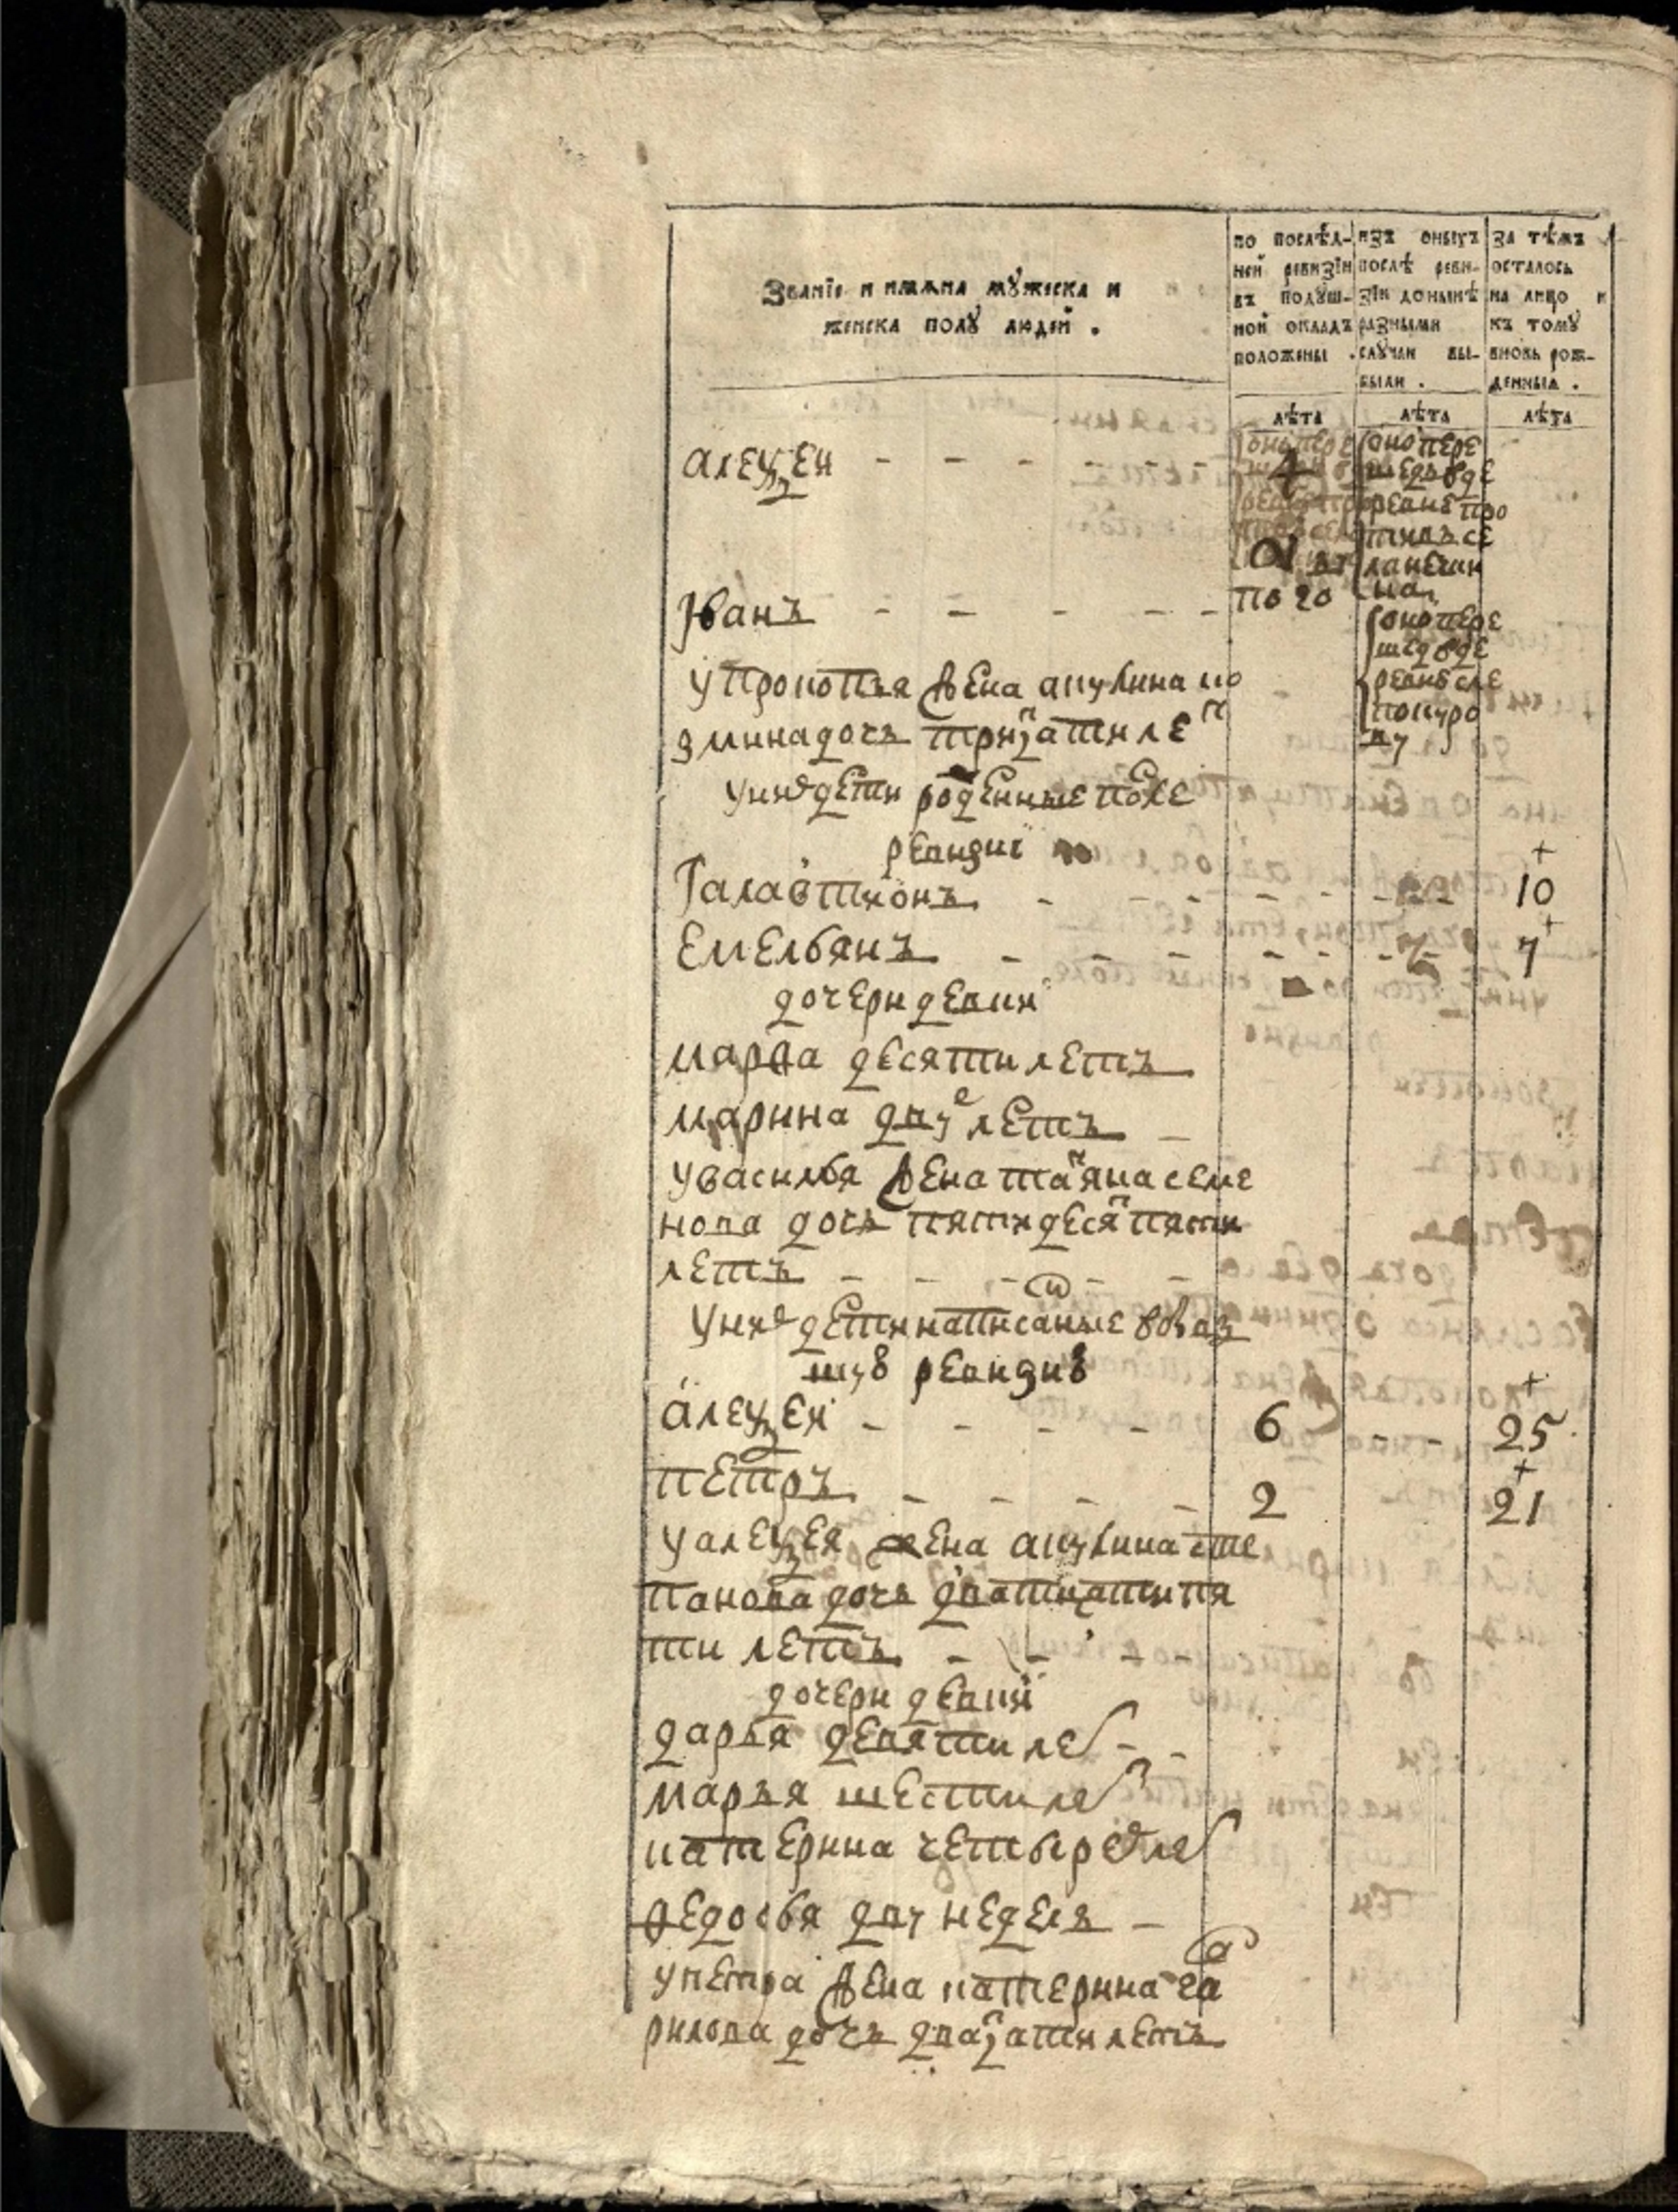 Званїе и имѧна мꙋжеска и
женска полꙋ людей .
по послѣд-
ней ревизїи
въ подꙋш-
ной окладъ
положены .
изъ оныхъ
послѣ реви-
зїи донынѣ
разными
слꙋчаи вы-
были .
за тѣмъ
осталось
на лицо и
къ томꙋ
вновь рож-
денныя .
лѣта
лѣта
лѣта
алеѯеи
4
оно пере
шедъ вде
ревне про
тивъ се
Іванъ
по го
оно пере
шед вде
ревне сле
у прокопья жена акулина ко
змина дочь трицати лет
у них дети роденные после
ревизиї
Галактионъ 10
Емельянъ 7
дочери девки
марфа десяти летъ
марина двуе летъ
у василья жена татяна семе
нова дочь пятидесят пяти
летъ
у них дети написаные в
шу ревизию
алеѯеи 6 25
петръ 2 21
у алеѯея жена акулина сте
панова дочь дватцати пя
ти летъ
дочери девки
дарья девяти лет
марья шести лет
катерина четырех лет
федосья двух неделя
у петра жена катерина га
рилова дочь двацати летъ